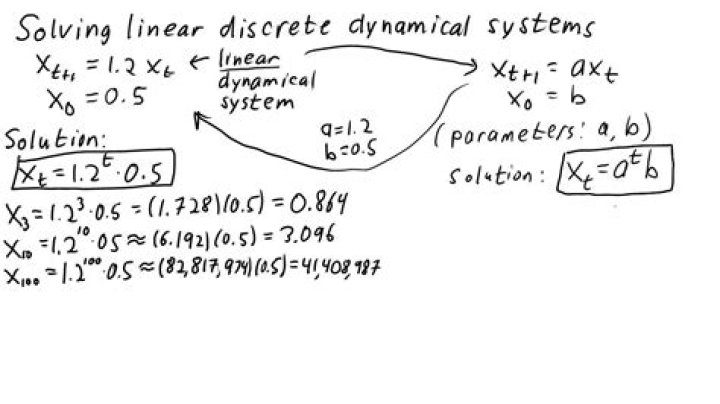 Solving linear discrete dynamical systems
x_{t+1} = 1.2 x_t ← linear dynamical system
x_0 = 0.5
x_{t+1} = ax_t
x_0 = b
a=1.2
b=0.5
(parameters: a, b)
Solution:
x_t = 1.2^t · 0.5
solution: x_t = a^t b
x_3 = 1.2^3 · 0.5 = (1.728)(0.5) = 0.864
x_10 = 1.2^10 · 0.5 ≈ (6.192)(0.5) = 3.096
x_100 = 1.2^100 · 0.5 ≈ (82,817,974)(0.5) = 41,408,987